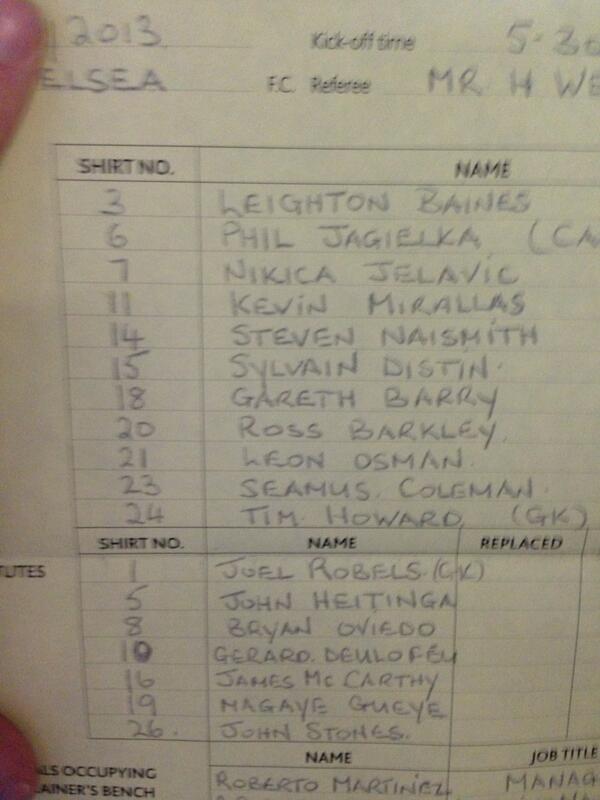 2013 Kick-off time 5.30
ELSEA F.C. Referee MR H WE
SHIRT NO. NAME
3 LEIGHTON BAINES
6 PHIL JAGIELKA (CA
7 NIKICA JELAVIC
11 KEVIN MIRALLAS
14 STEVEN NAISMITH
15 SYLVAIN DISTIN.
18 GARETH BARRY
20 ROSS BARKLEY.
21 LEON OSMAN.
23 SEAMUS. COLEMAN.
24 TIM HOWARD (GK)
SHIRT NO. NAME REPLACED
TUTES 1 JOEL ROBELS (GK)
5 JOHN HEITINGA
8 BRYAN OVIEDO
10 GERARD. DEULOFEU
16 JAMES Mc CARTHY
19 MAGAYE GUEYE
26. JOHN STONES.
NAME JOB TITLE
ALS OCCUPYING
AINER'S BENCH ROBERTO MARTINEZ MANAG